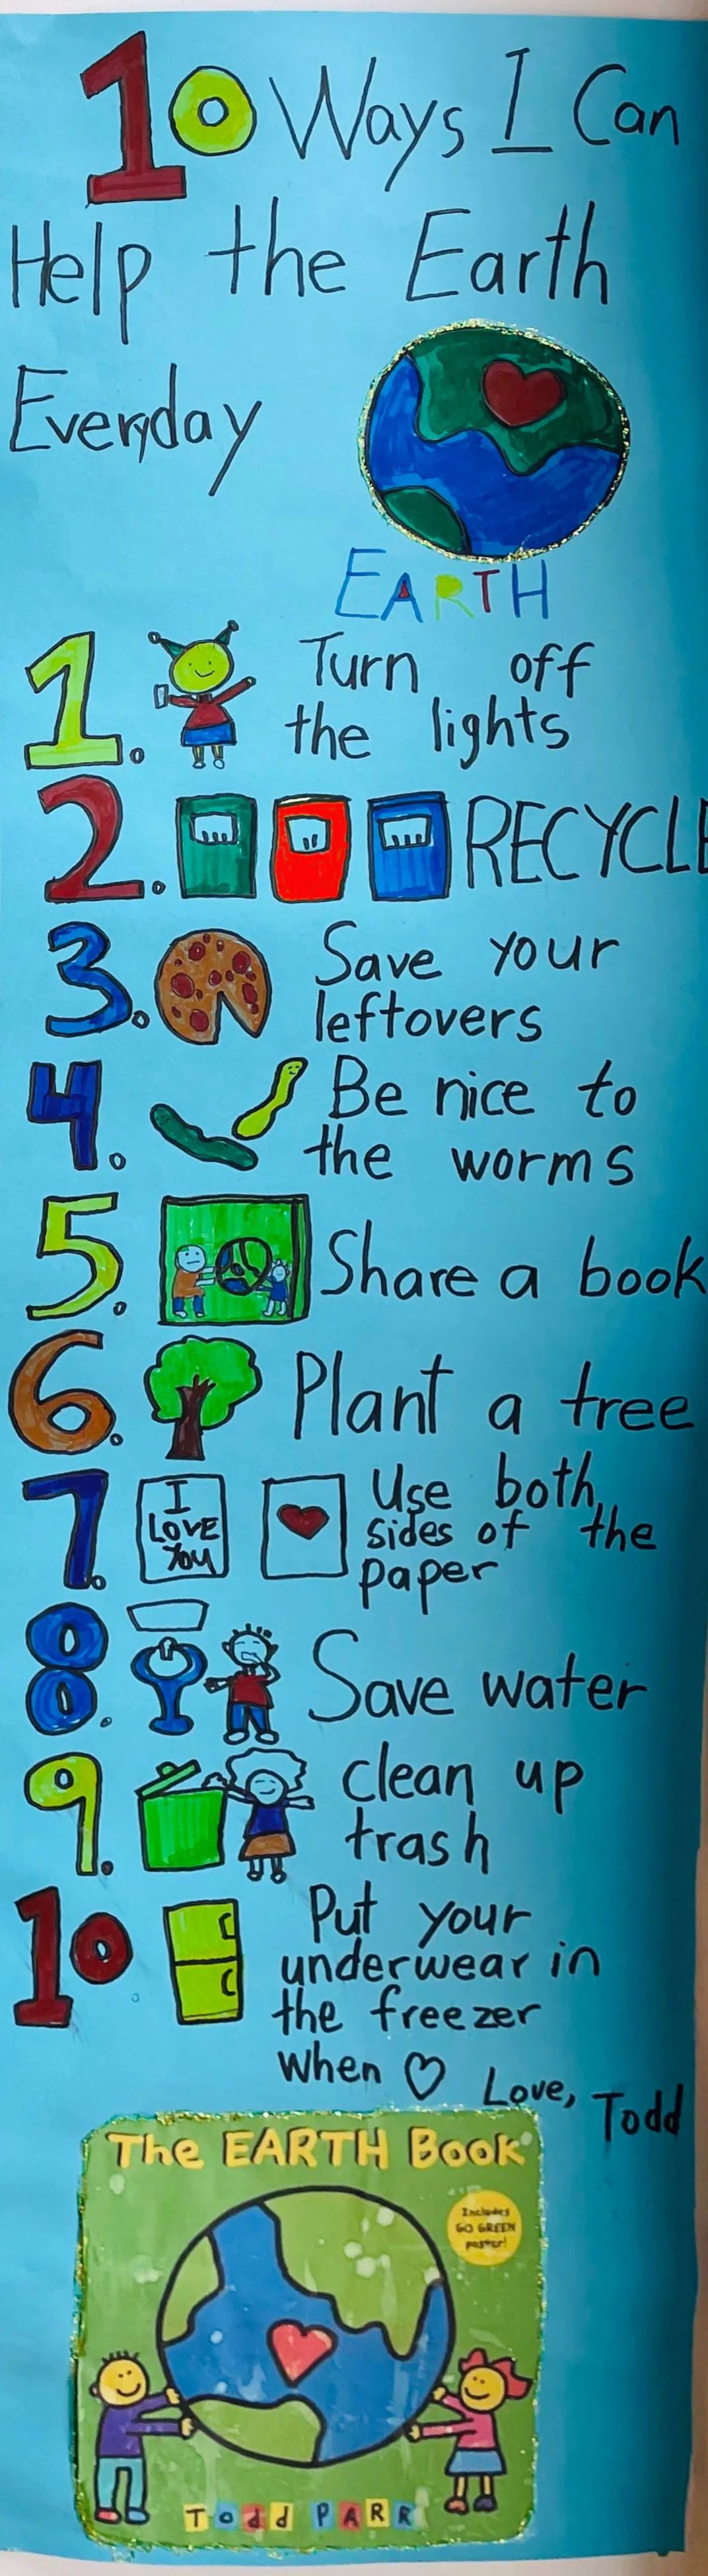 10 Ways I Can
Help the Earth
Everyday
EARTH
1. Turn off
the lights
2. RECYCLE
3. Save your
leftovers
4. Be nice to
the worms
5. Share a book
6. Plant a tree
7. I
LOVE
You
Use both
sides of the
paper
8. Save water
9. clean up
trash
10. Put your
underwear in
the freezer
when ♡ Love, Todd
The EARTH Book
Includes
GO GREEN
poster!
Todd PARR